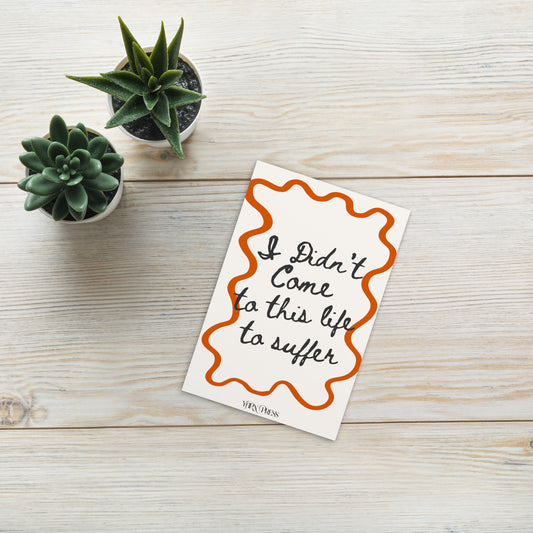 I Didn't
Come
to this life
to suffer
YARN PRESS